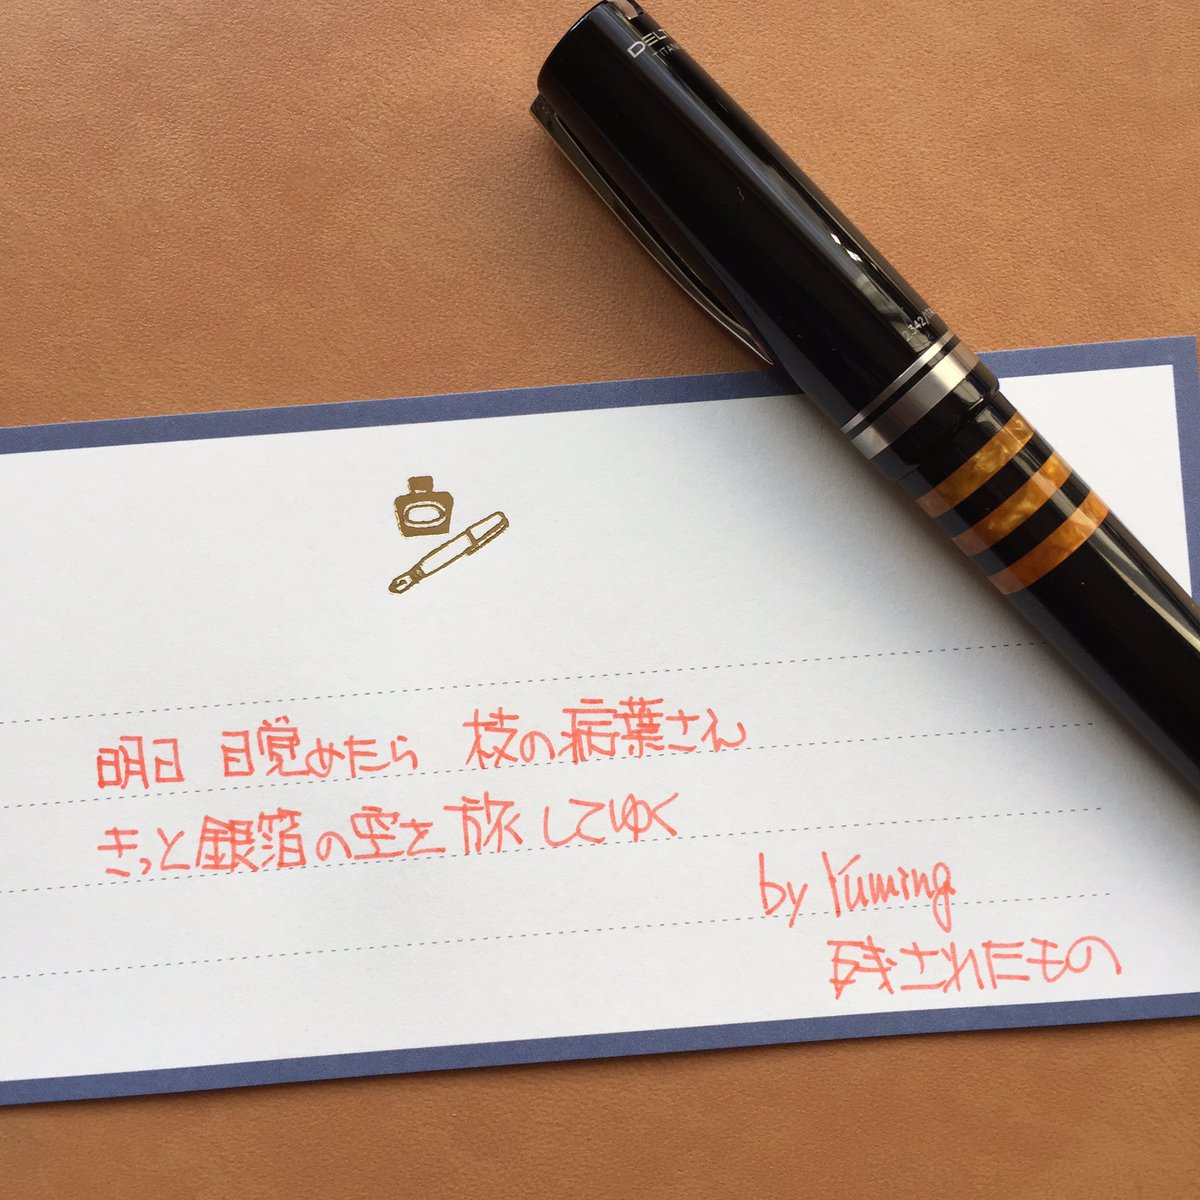 DELT
TITAN
2342/
明日 目覚めたら 枝の病葉さえ
きっと銀箔の空を旅してゆく
by Yuming
残されたもの